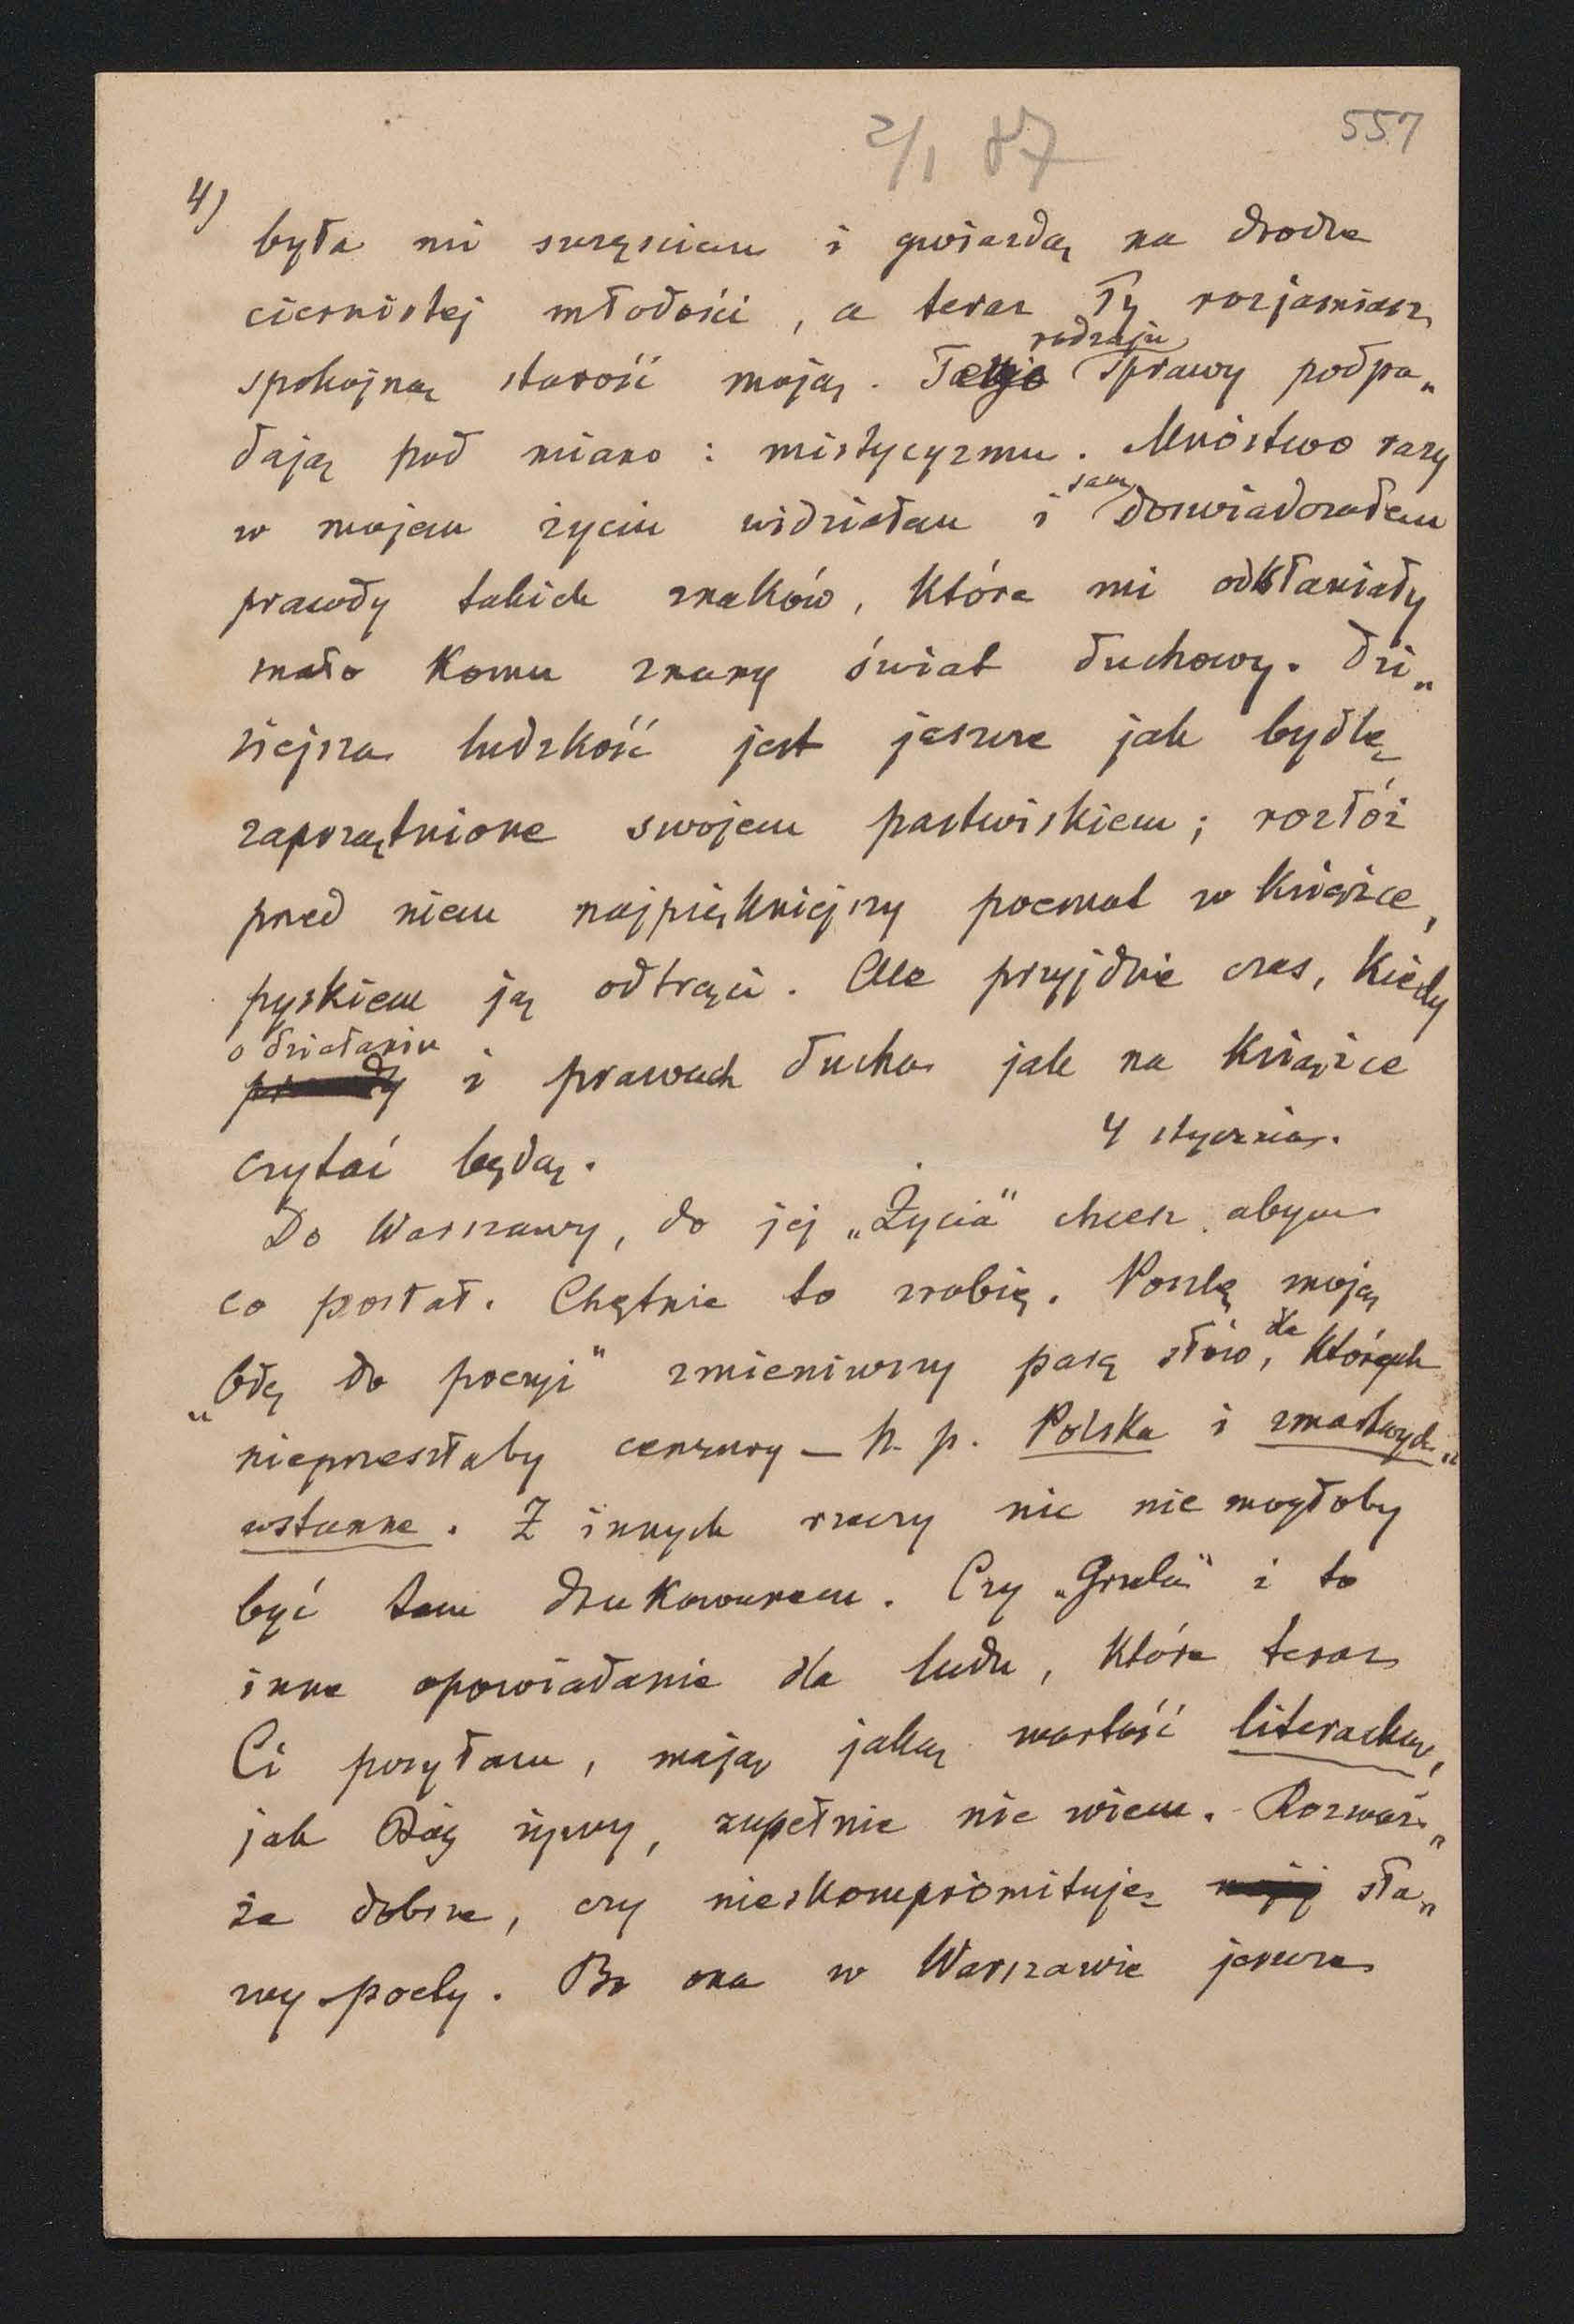 2/1 87
557
4)
była mi szczęściem i gwiazdą na drodze
ciernistej młodości, a teraz Ty rozjaśniasz
spokojną starość moją. Tego rodzaju sprawy podpa„
dają pod miano: mistycyzmu. Mnóstwo razy
w mojem życiu widziałem i sam doświadczałem
prawdy takich znaków, które mi odsłaniały
mało komu znany świat duchowy. Dzi„
siejsza ludzkość jest jeszcze jak bydlę
zaprzątnione swojem pastwiskiem; rozłóż
przed niem najpiękniejszy poemat w książce,
pyskiem ją odtrąci. Ale przyjdzie czas, kiedy
o działaniu
prawdy i prawach ducha jak na książce
czytać będą.
4 stycznia.
Do Warszawy, do jej „Życia" chcesz abym
co posłał. Chętnie to zrobię. Poszlę moją
„Odę do poezji" zmieniwszy parę słów, dla których
nieprzeszłaby cenzury – n. p. Polska i zmartwych„
wstanne. Z innych rzeczy nic nie mogłoby
być tam drukowanem. Czy „Grula" i to
inne opowiadanie dla ludu, które teraz
Ci posyłam, mają jaką wartość literacką,
jak Bóg żywy, zupełnie nie wiem. Rozważ„
że dobrze, czy nieskompromituję mojej sła„
wy poety. Bo ona w Warszawie jeszcze